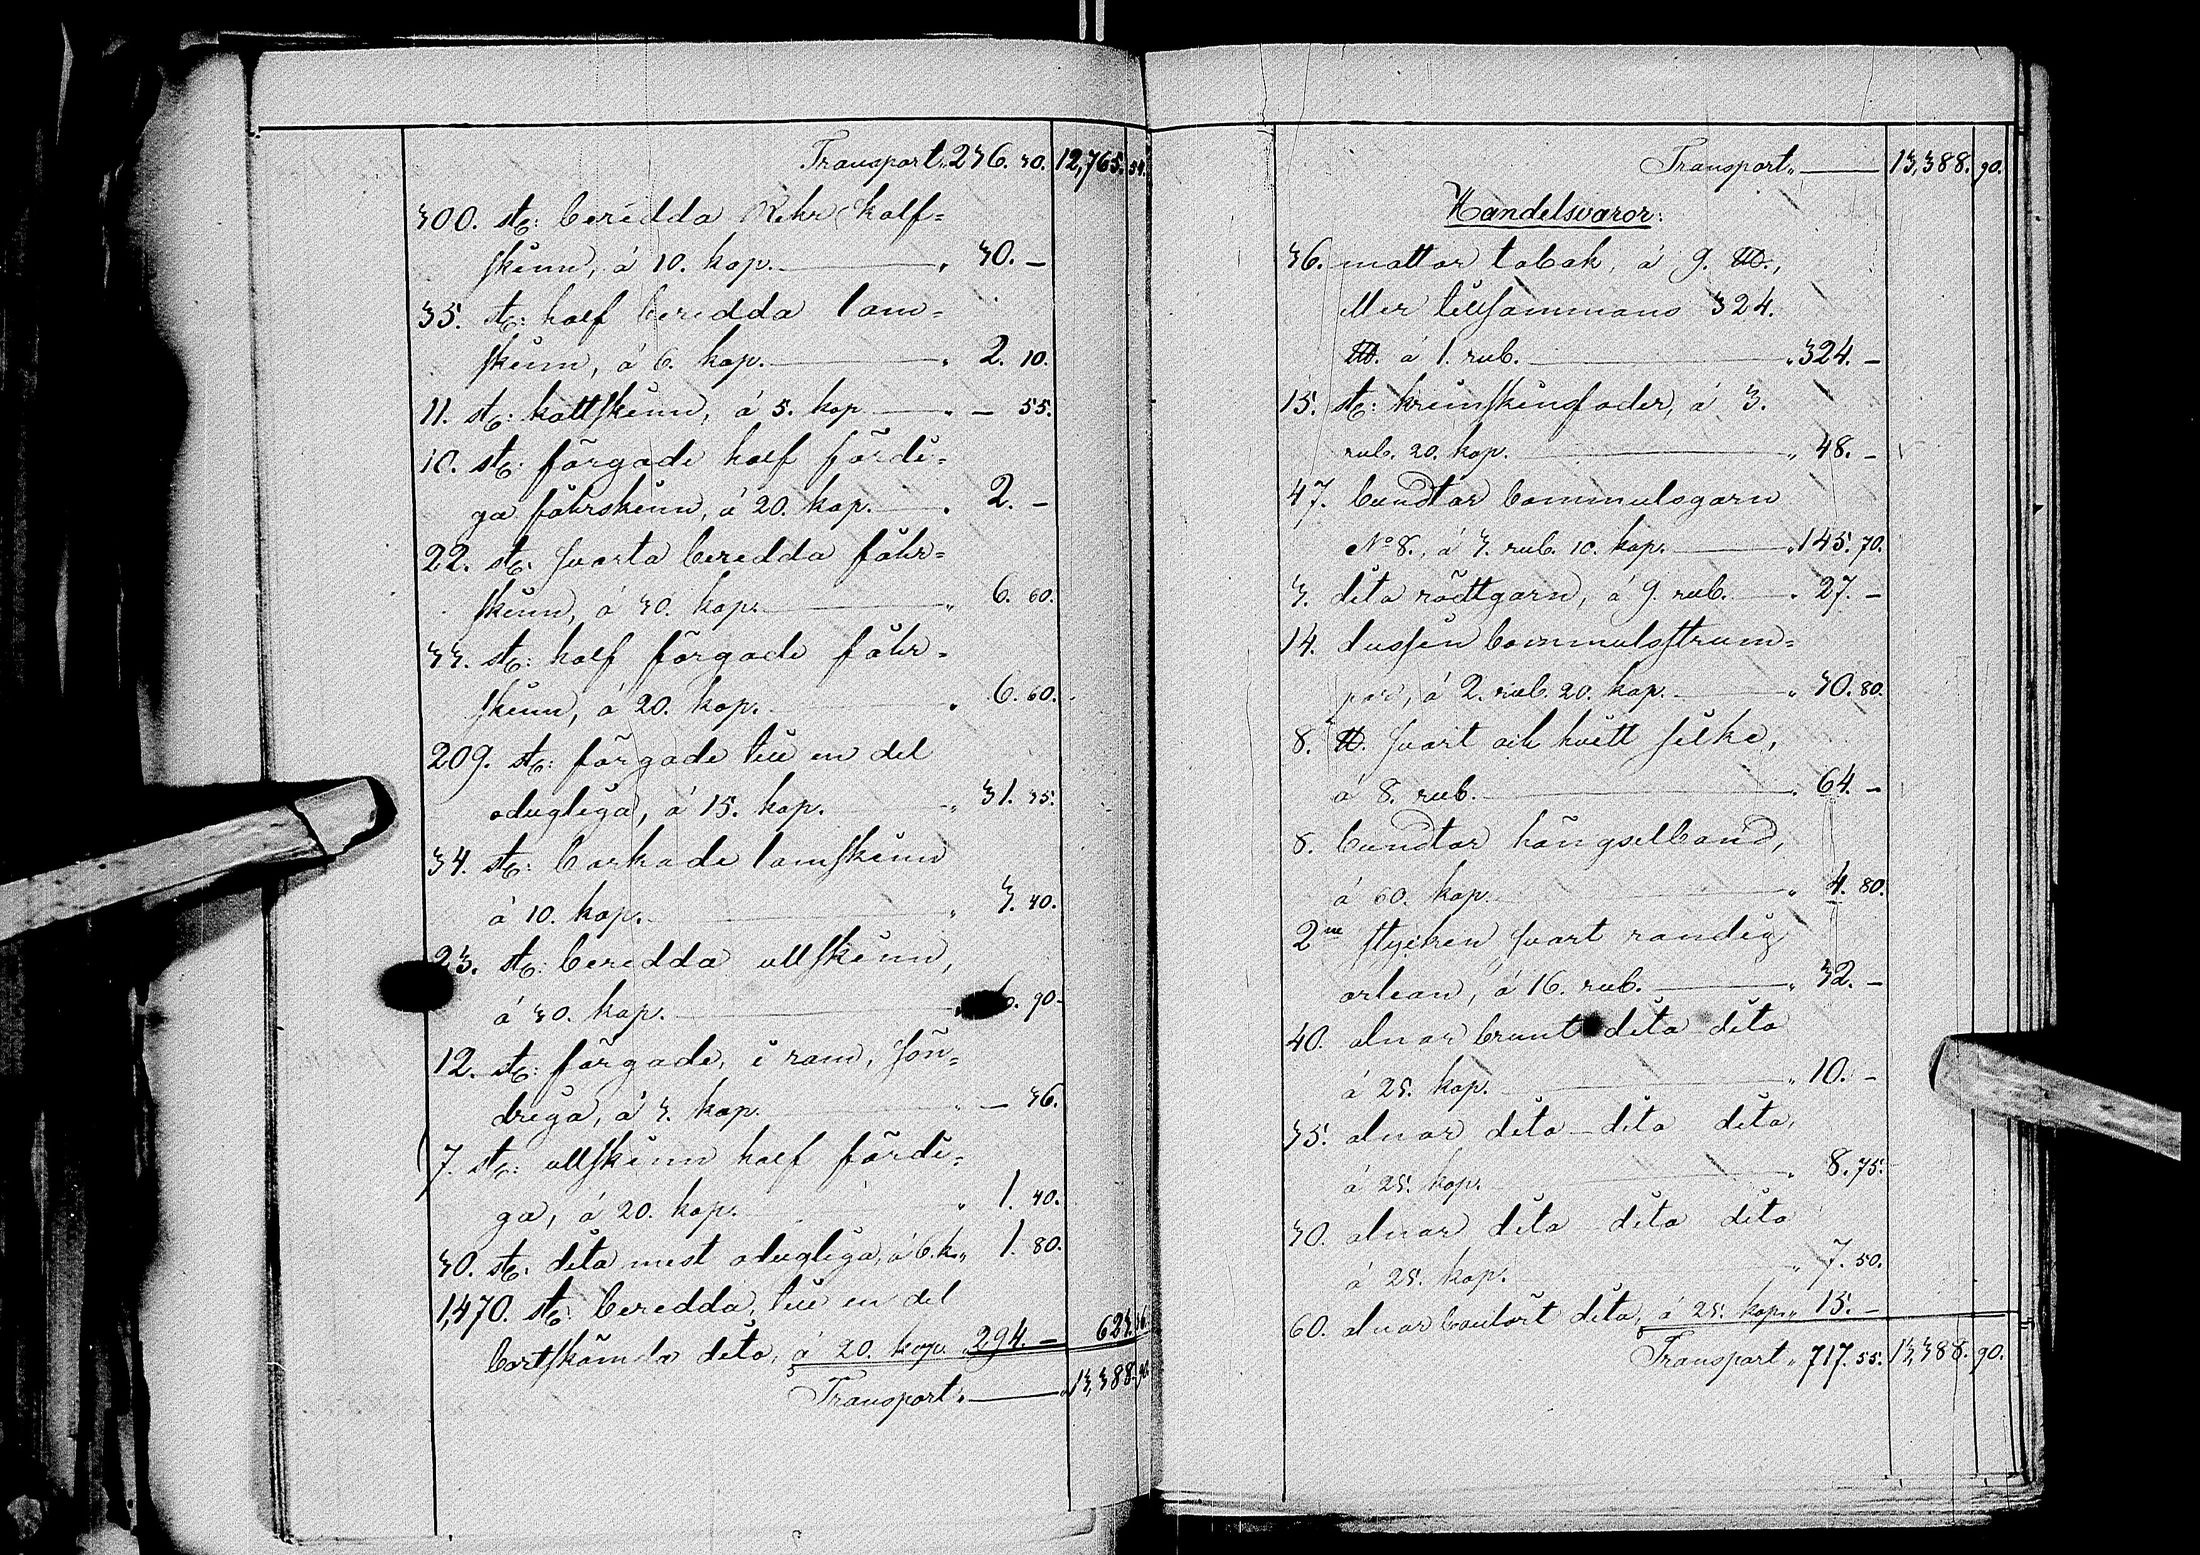 Transport „ 236. 30. 12,765. 54.
300. st: beredda Rehn kalf=
skinn, á 10. kop. „ 30. —
35. st: half beredda lam=
skinn, á 6. kop. „ 2. 10.
11. st: kattskinn, á 5. kop „ — 55.
10. st: färgade half färdi=
ga fåhrskinn, á 20. kop. „ 2. —
22. st: svarta beredda fåhr=
skinn, á 30. kop. „ 6. 60.
33. st: half färgade fåhr=
skinn, á 20. kop. „ 6. 60.
209. st: färgade till en del
odugliga, á 15. kop. „ 31. 35.
34. st: barkade lamskinn
á 10. kop. „ 3. 40.
23. st: beredda ullskinn,
á 30. kop. 6. 90.
12. st: färgade, i ram, sön=
driga, á 3. kop. „ — 36.
7. st: ullskinn half färdi=
ga, á 20. kop. „ 1. 40.
30. st: dito mest odugliga, á 6. k. „ 1. 80.
1,470. st: beredda, till en del
bortskämda dito, á 20. kop. „ 294. — 623. 36.
Transport „ — „ 13,388. 90.
Transport „ — 13,388. 90.
Handelsvaror:
36. mattor tabak, á 9. ℔.,
eller tillsammans 324.
℔. á 1. rub. „ 324. —
15. st: krimskinsfoder, á 3.
rub. 20. kop. „ 48. —
47. bundtar bommulsgarn
No 8., á 3. rub. 10. kop. „ 145. 70.
3. dito rödtgarn, á 9. rub. „ 27. —
14. dussin bommulsstrum=
por, á 2. rub. 20. kop. „ 30. 80.
8. ℔. svart och hvitt silke,
á 8. rub. „ 64. —
8. bundtar hängselband,
á 60. kop. „ 4. 80.
2ne stycken svart randig
orlean, á 16. rub. „ 32. —
40. alnar brunt dito dito
á 25. kop. „ 10. —
35. alnar dito dito dito,
á 25. kop. „ 8. 75.
30. alnar dito dito dito
á 25. kop. „ 7. 50.
60. alnar coulört dito, á 25. kop. „ 15. —
Transport „ 717. 55. 13,388. 90.